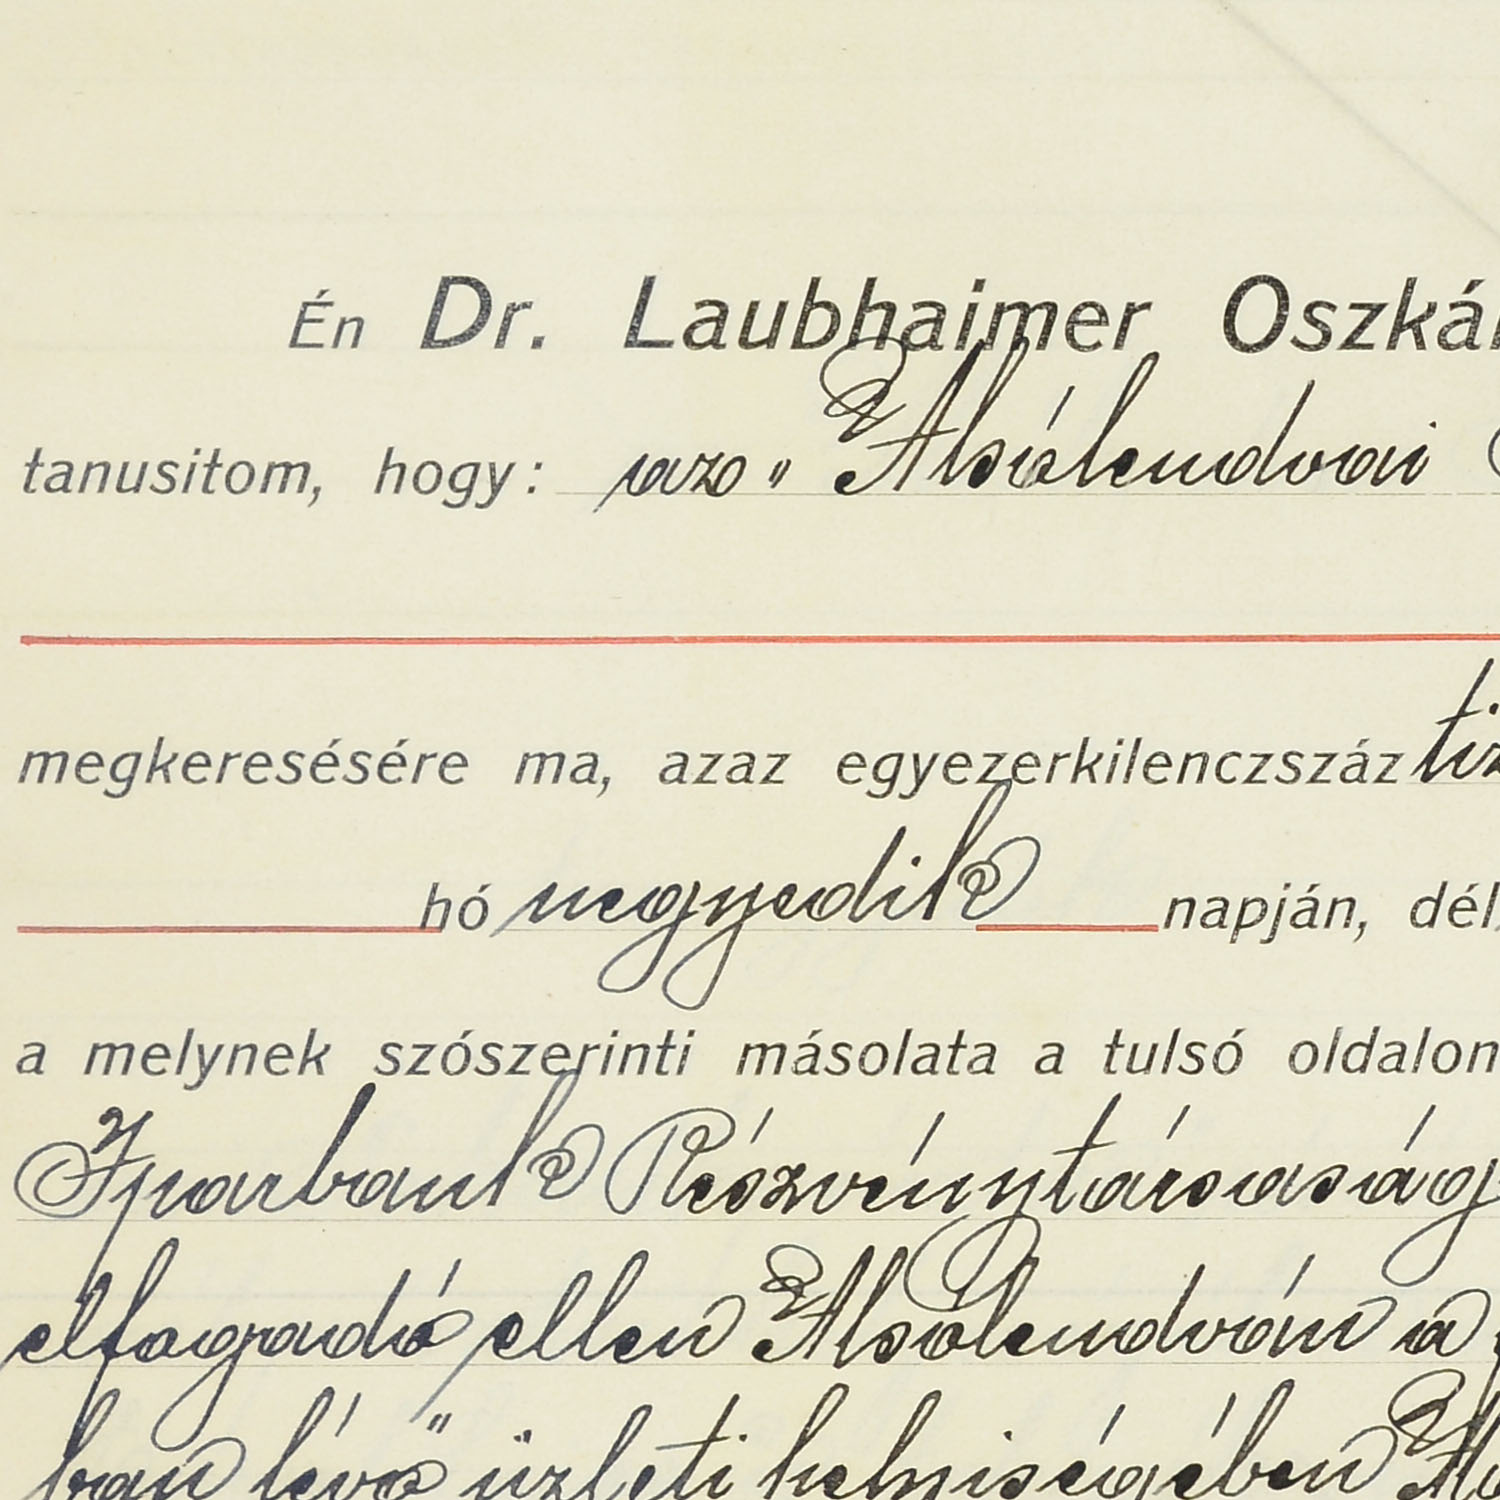 Én Dr. Laubhaimer Oszkár
tanusitom, hogy: az „Alsólendvai
megkeresésére ma, azaz egyezerkilenczszáz tiz
hó negyedik napján, dél
a melynek szószerinti másolata a tulsó oldalon
Iparbank Részvénytársaság
elfogadó ellen Alsólendván a
ban lévő üzleti helyiségében